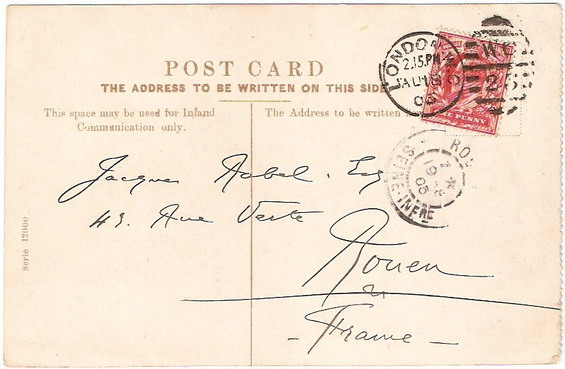 POST CARD
THE ADDRESS TO BE WRITTEN ON THIS SIDE
This space may be used for Inland
Communication only.
The Address to be written
LONDON. W
2.15.PM
AU 18
05
W
ONE PENNY
ROU
7 *
19 -8
05
SEINE-INFRE
Jacques Aabel. Esq
43. Rue Verte
Rouen
France
Serie 12000